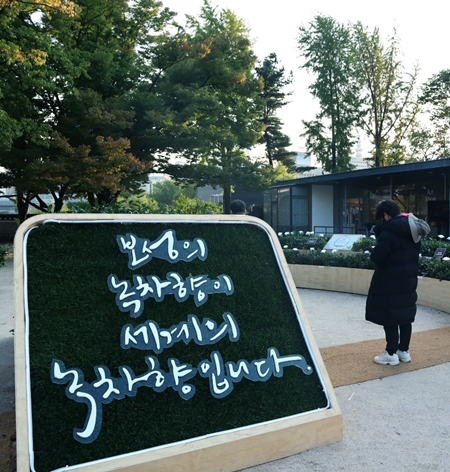 보성의
녹차향이
세계의
녹차향입니다.